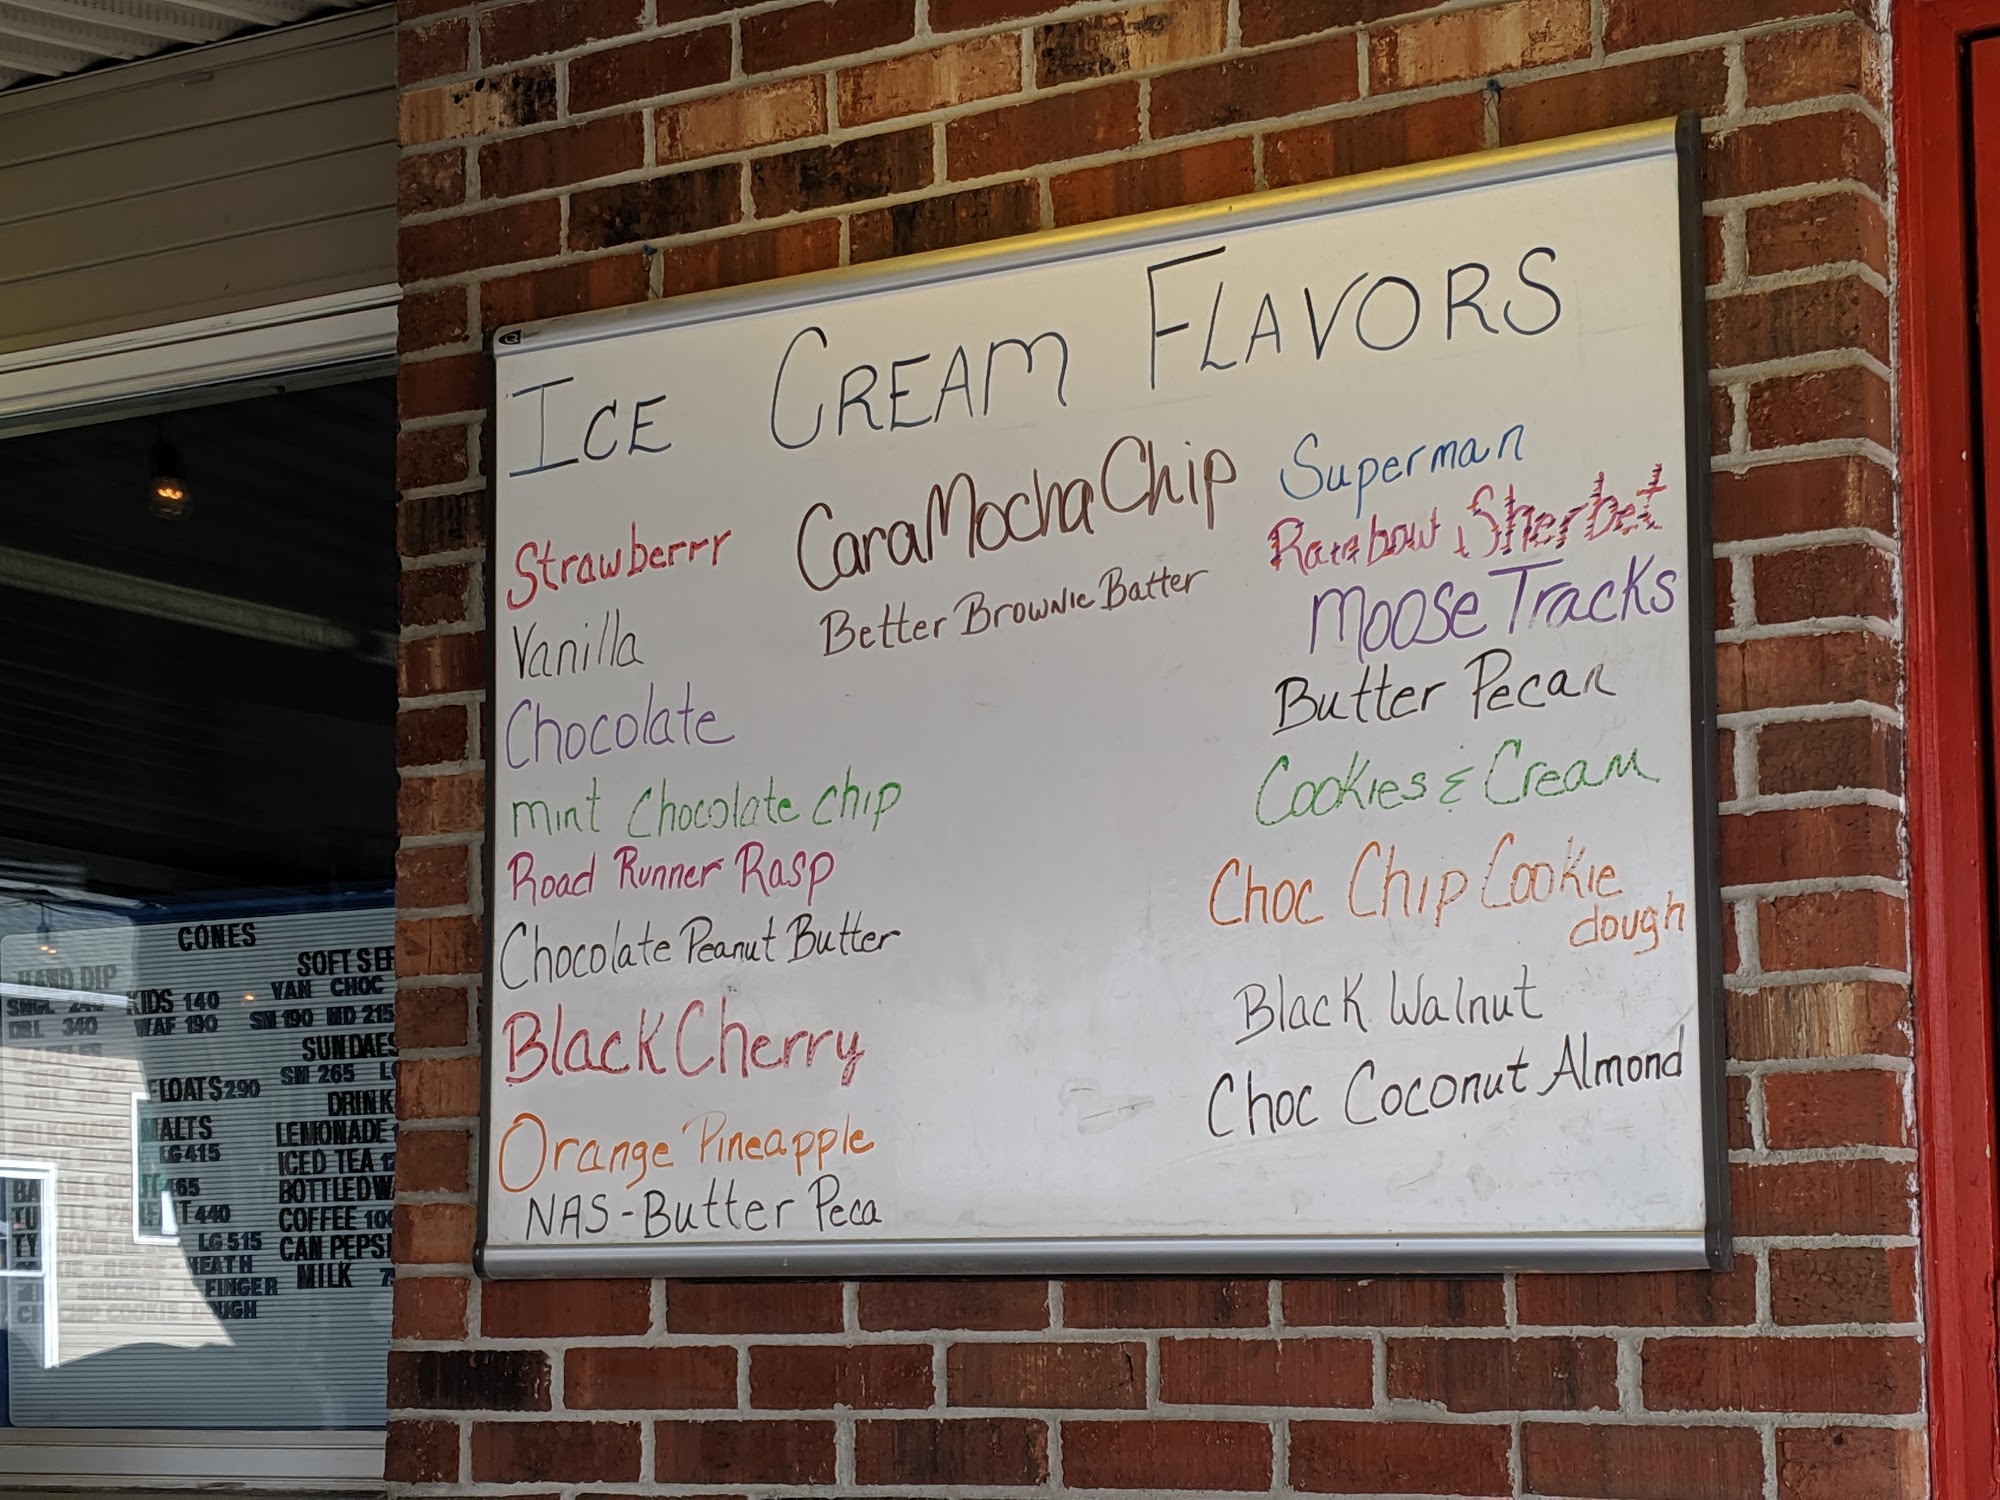 ICE CREAM FLAVORS
Strawberrr
Vanilla
Chocolate
mint Chocolate chip
Road Runner Rasp
Chocolate Peanut Butter
Black Cherry
Orange Pineapple
NAS-Butter Peca
CaraMochaChip
Better Brownie Batter
Superman
Rainbow Sherbet
Moose Tracks
Butter Pecan
Cookies & Cream
Choc Chip Cookie
dough
Black Walnut
Choc Coconut Almond
CONES
HAND DIP
SOFT SE
SNGL 240 KIDS 140
VAN CHOC
DBL 340 WAF 190
SM 190 MD 215
SUNDAES
FLOATS 290
SM 265
DRINK
MALTS
LEMONADE
LG 415
ICED TEA
465
BOTTLED
440
COFFEE 100
LG 515
CAN PEPSI
HEATH
MILK
FINGER